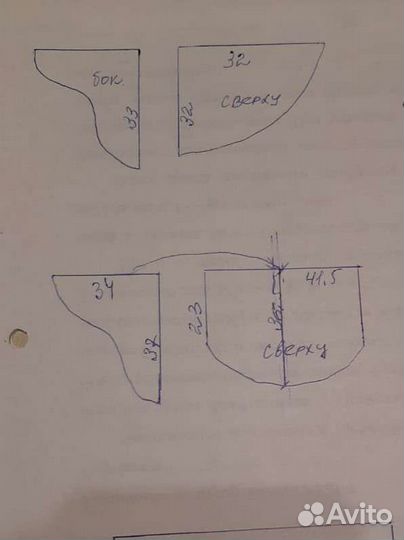 32
бок
сверху
33
32
34
41.5
23
32
сверху
Avito